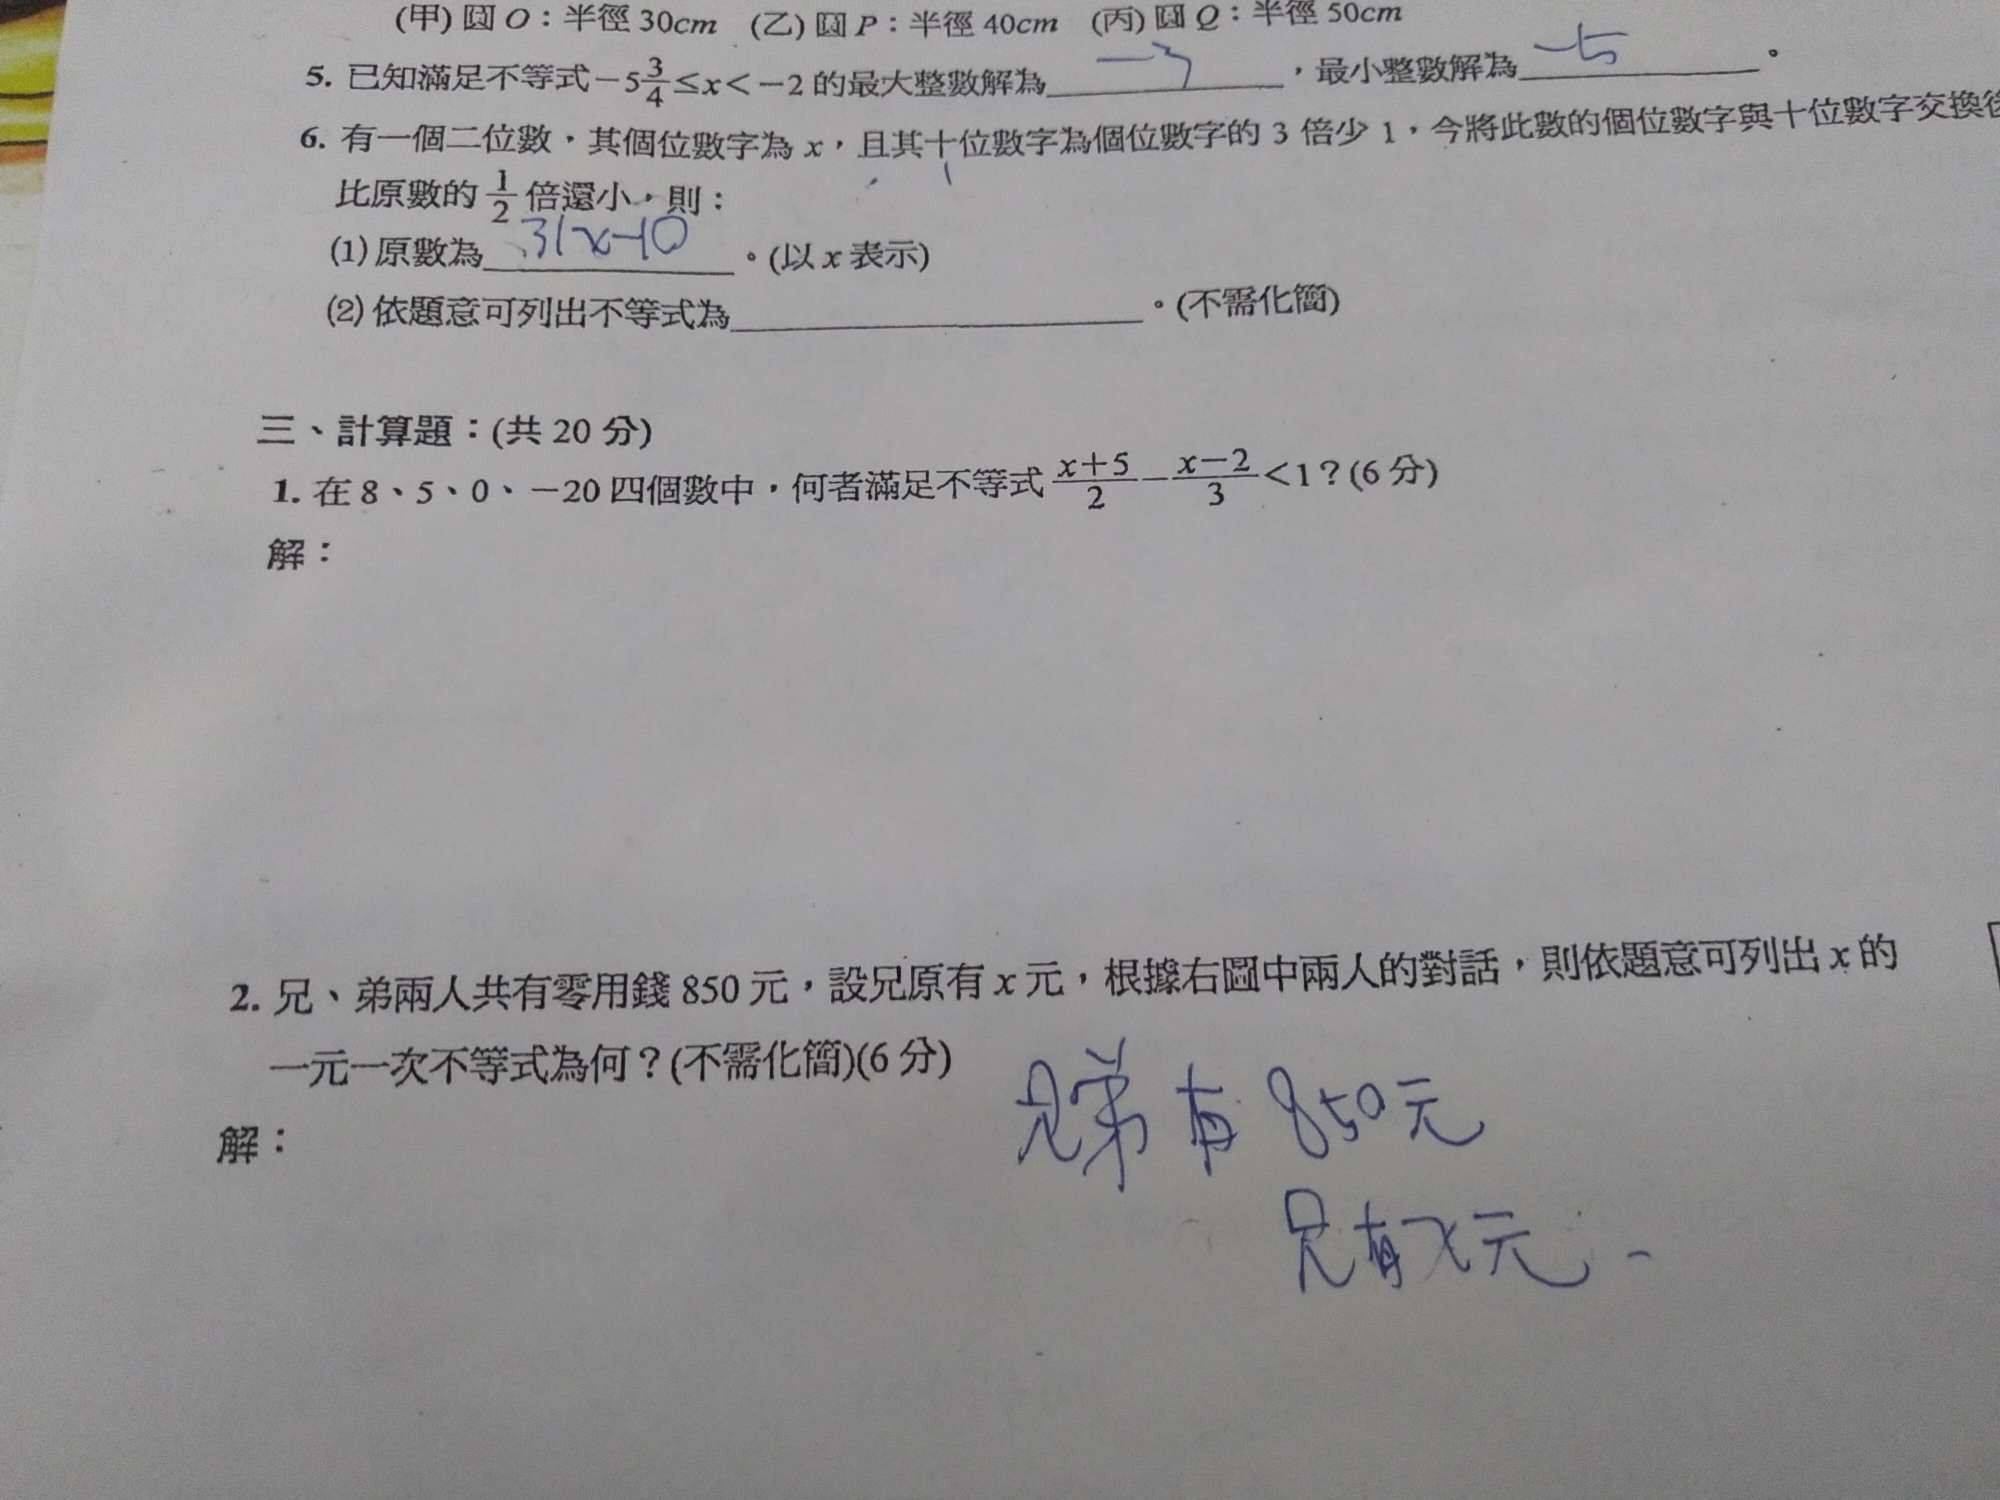 (甲) 圓 O：半徑 30cm (乙) 圓 P：半徑 40cm (丙) 圓 Q：半徑 50cm
5. 已知滿足不等式 −5 3/4 ≤ x < −2 的最大整數解為 −3 ，最小整數解為 −5 。
6. 有一個二位數，其個位數字為 x，且其十位數字為個位數字的 3 倍少 1，今將此數的個位數字與十位數字交換後
比原數的 1/2 倍還小，則：
(1) 原數為 31x−10 。(以 x 表示)
(2) 依題意可列出不等式為 。(不需化簡)
三、計算題：(共 20 分)
1. 在 8、5、0、−20 四個數中，何者滿足不等式 x+5/2 − x−2/3 < 1？(6 分)
解：
2. 兄、弟兩人共有零用錢 850 元，設兄原有 x 元，根據右圖中兩人的對話，則依題意可列出 x 的
一元一次不等式為何？(不需化簡)(6 分)
兄弟有 850元
解：
兄有x元 -